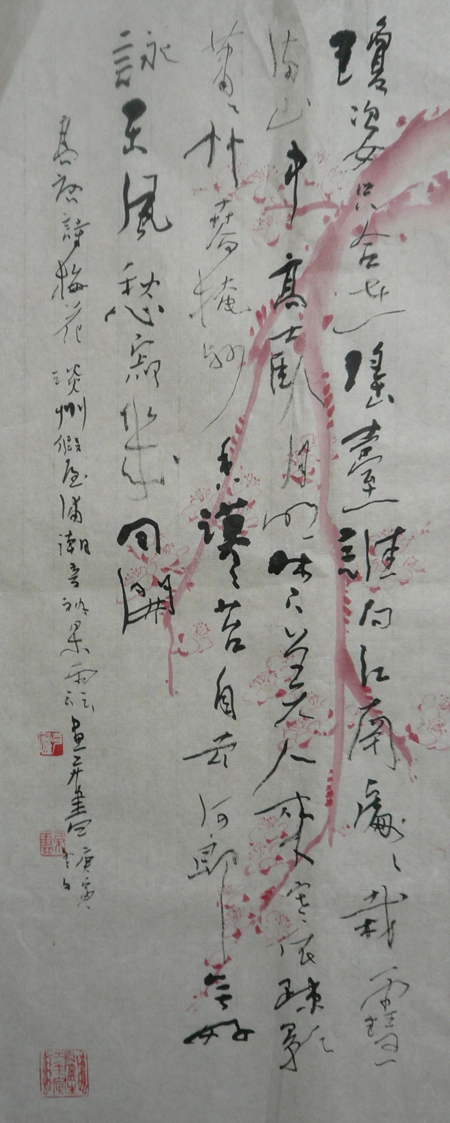 瓊姿只合在瑤臺誰向江南處〻栽雪
滿山中高士臥月明林下美人來寒依疎影
蕭〻竹春掩殘香漠〻苔自去何郎無好
詠東風愁寂幾回開
高啟詩梅花 假屋浦潮音 畫并書 庚寅